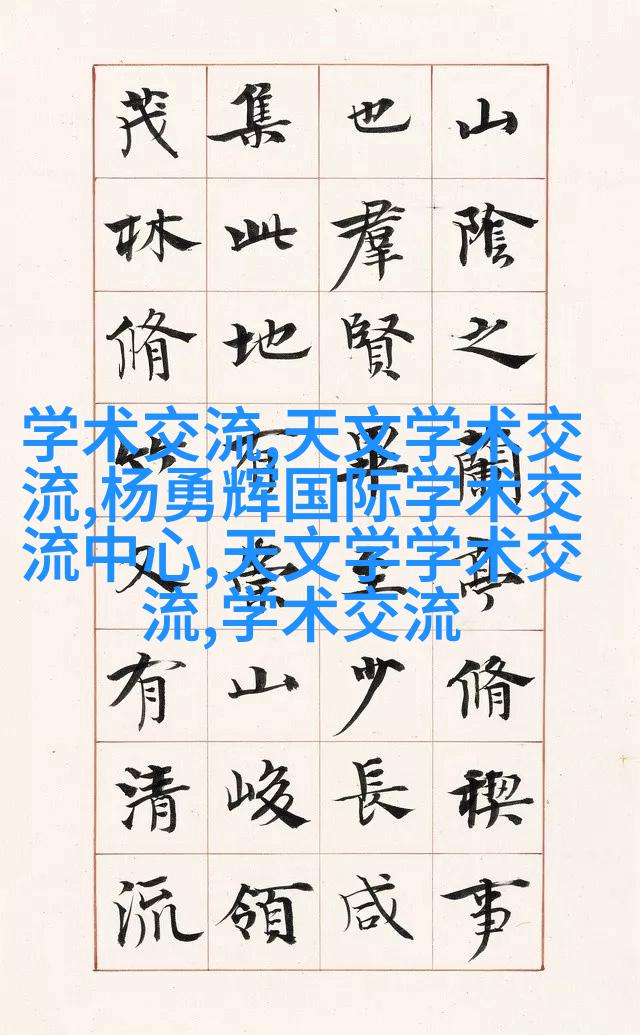 山陰之蘭亭脩稧事
也羣賢畢至少長咸
集此地有崇山峻領
茂林脩竹又有清流
学术交流,天文学术交
流,杨勇辉国际学术交
流中心,天文学学术交
流,学术交流